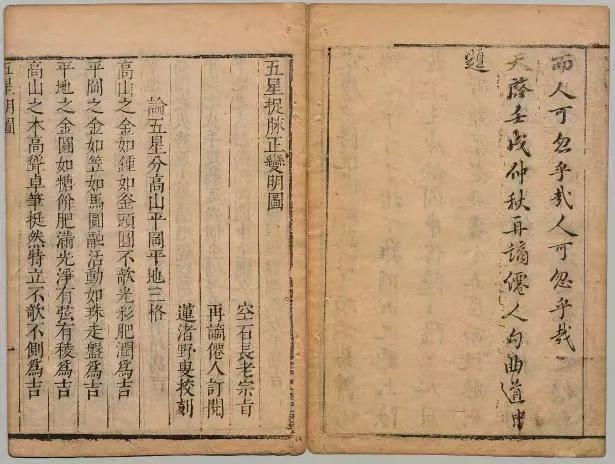 而人可忽乎哉人可忽乎哉
天啓壬戌仲秋再謫僊人句曲道中
題
五星捉脉正變明圖
空石長老宗旨
再謫僊人訂閱
蓮渚野叟校刻
論五星分高山平岡平地三格
高山之金如鍾如釜頭圓不欹光彩肥潤爲吉
平岡之金如笠如馬圓融活動如珠走盤爲吉
平地之金圓如糖餅肥滿光淨有弦有稜爲吉
高山之木高聳卓筆挺然特立不欹不側爲吉
五星明圖
一